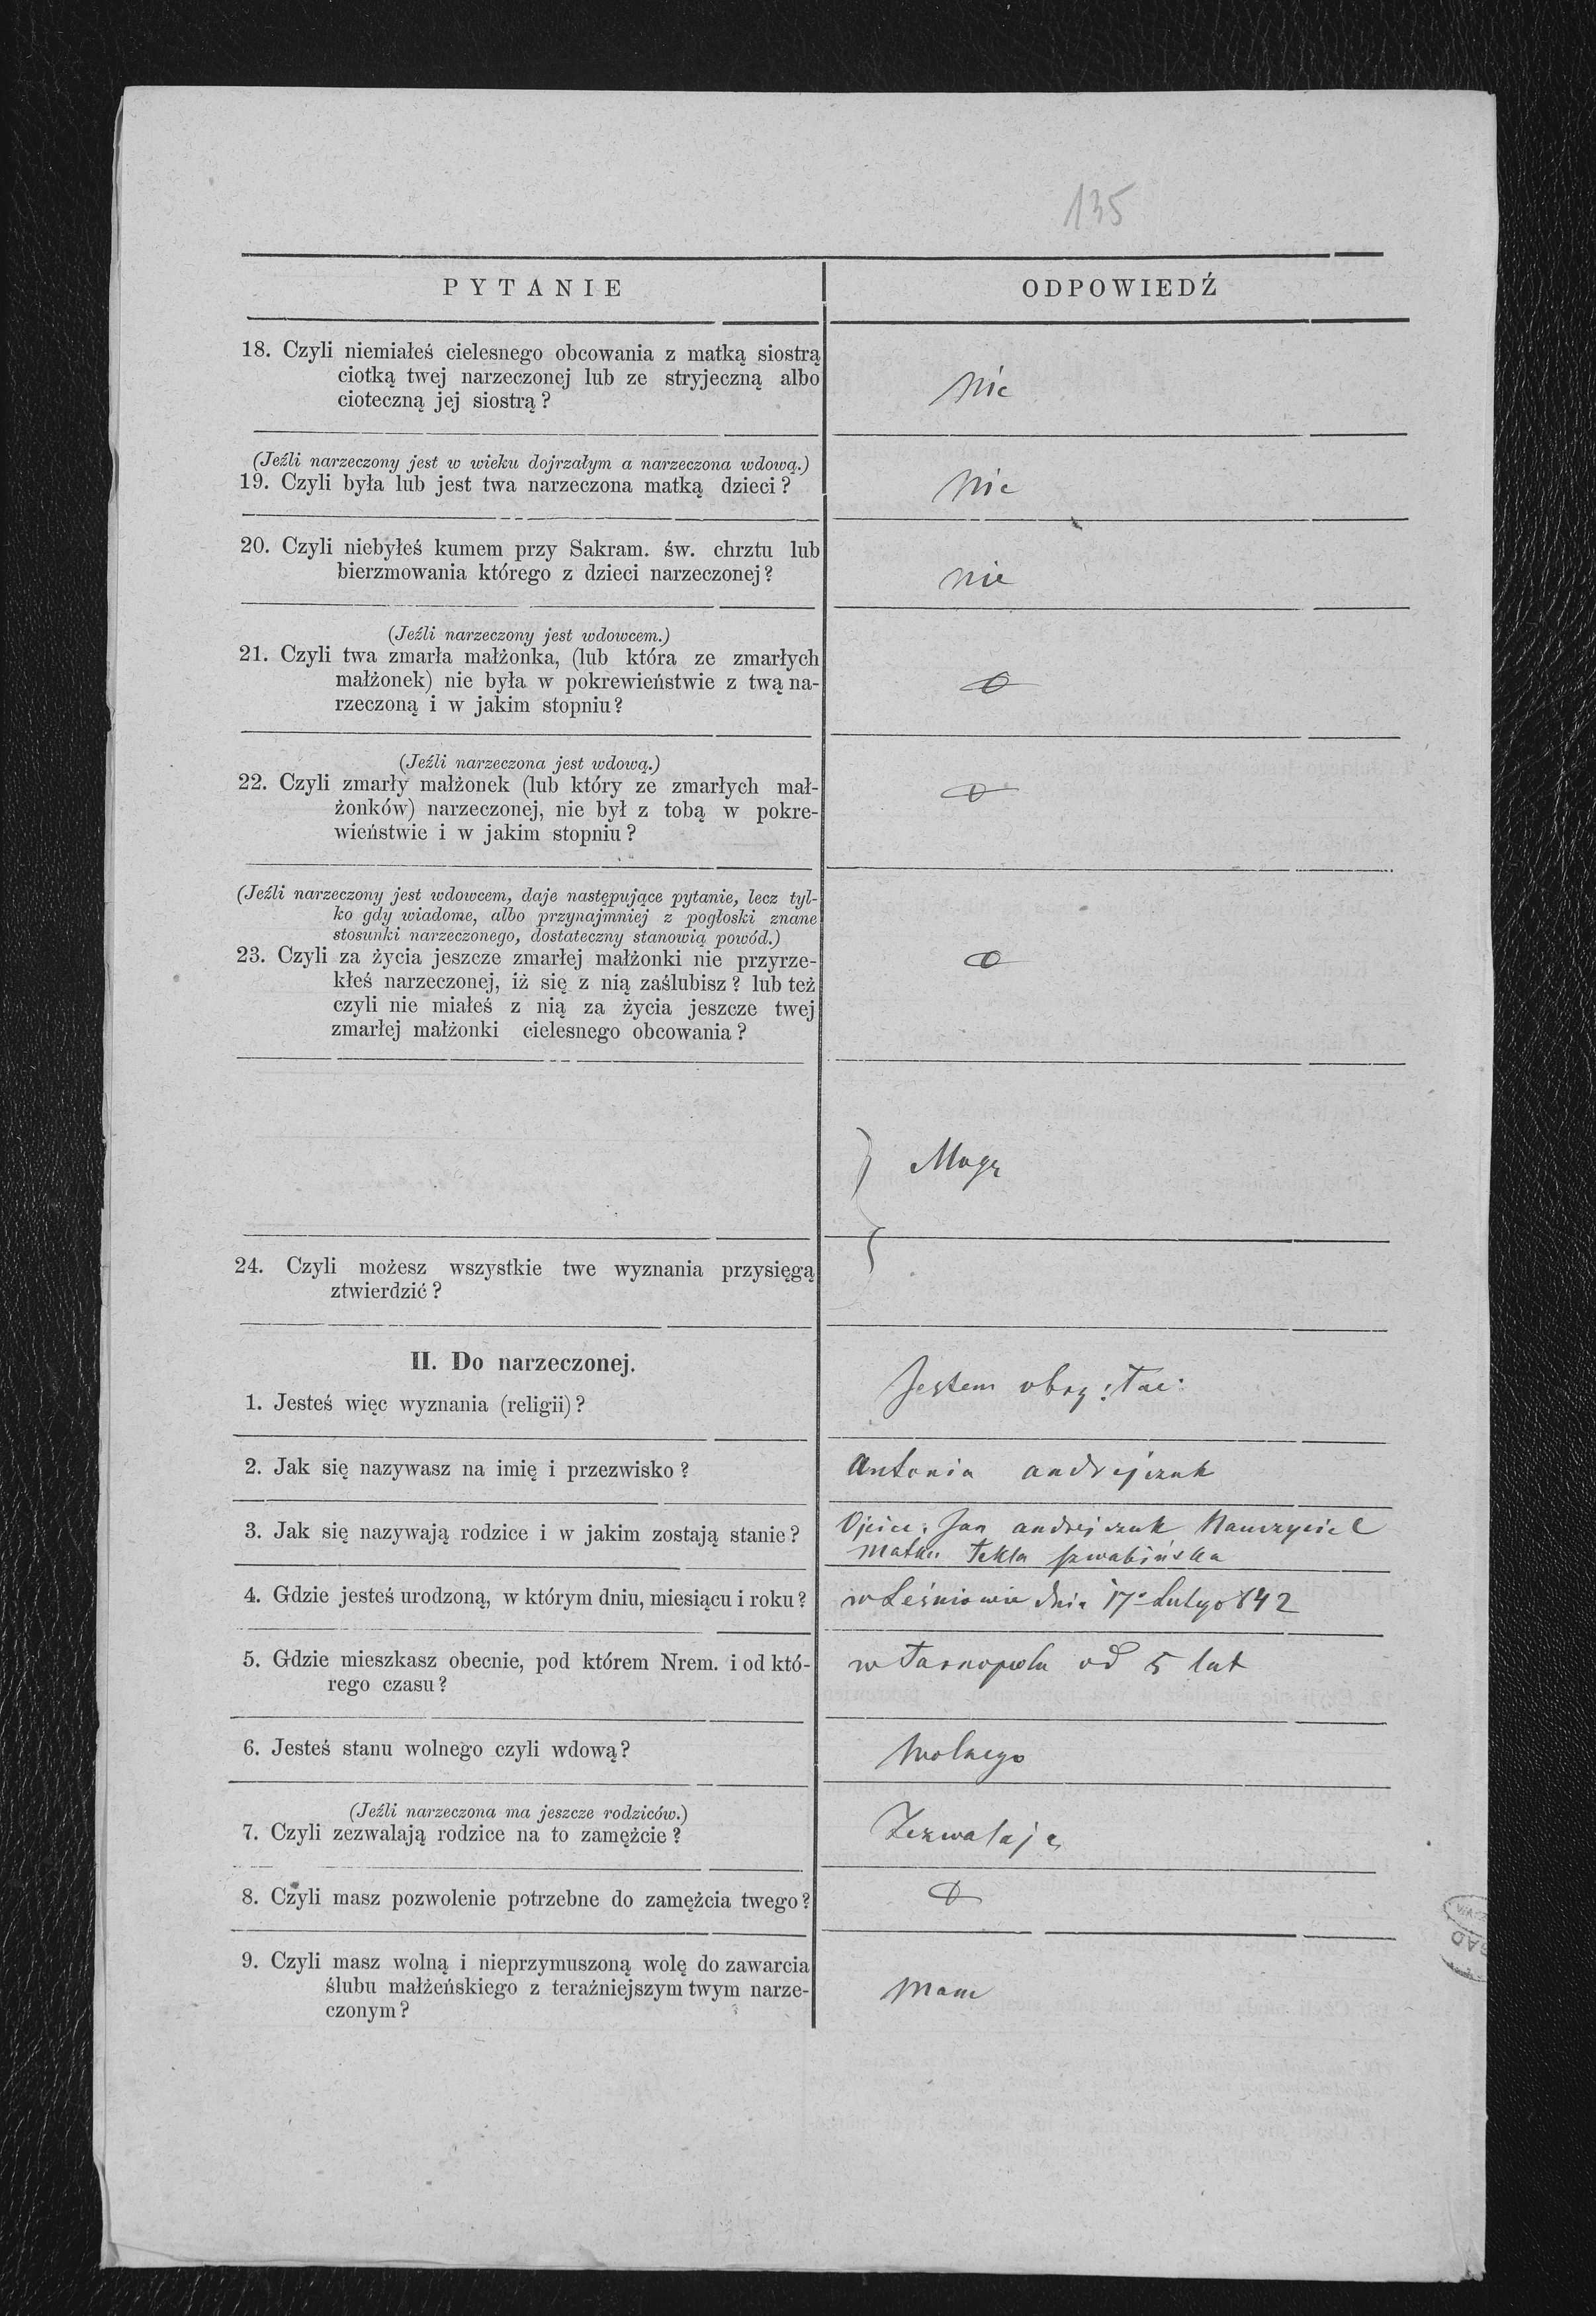 135
PYTANIE
ODPOWIEDŹ
18. Czyli niemiałeś cielesnego obcowania z matką siostrą
ciotką twej narzeczonej lub ze stryjeczną albo
cioteczną jej siostrą?
Nie
(Jeźli narzeczony jest w wieku dojrzałym a narzeczona wdową.)
19. Czyli była lub jest twa narzeczona matką dzieci?
Nie
20. Czyli niebyłeś kumem przy Sakram. św. chrztu lub
bierzmowania którego z dzieci narzeczonej?
nie
(Jeźli narzeczony jest wdowcem.)
21. Czyli twa zmarła małżonka, (lub która ze zmarłych
małżonek) nie była w pokrewieństwie z twą na-
rzeczoną i w jakim stopniu?
(Jeźli narzeczona jest wdową.)
22. Czyli zmarły małżonek (lub który ze zmarłych mał-
żonków) narzeczonej, nie był z tobą w pokre-
wieństwie i w jakim stopniu?
(Jeźli narzeczony jest wdowcem, daje następujące pytanie, lecz tyl-
ko gdy wiadome, albo przynajmniej z pogłoski znane
stosunki narzeczonego, dostateczny stanowią powód.)
23. Czyli za życia jeszcze zmarłej małżonki nie przyrze-
kłeś narzeczonej, iż się z nią zaślubisz? lub też
czyli nie miałeś z nią za życia jeszcze twej
zmarłej małżonki cielesnego obcowania?
Mogę
24. Czyli możesz wszystkie twe wyznania przysięgą
ztwierdzić?
II. Do narzeczonej.
1. Jesteś więc wyznania (religii)?
Jestem obrz: łac:
2. Jak się nazywasz na imię i przezwisko?
Antonia Andrejczuk
3. Jak się nazywają rodzice i w jakim zostają stanie?
Ojciec: Jan Andrejczuk Nauczyciel
Matka Tekla Szwabińska
4. Gdzie jesteś urodzoną, w którym dniu, miesiącu i roku?
w Leśniowie dnia 17o Lutego 842
5. Gdzie mieszkasz obecnie, pod którem Nrem. i od któ-
rego czasu?
w Tarnopolu od 5 lat
6. Jesteś stanu wolnego czyli wdową?
Wolnego
(Jeźli narzeczona ma jeszcze rodziców.)
7. Czyli zezwalają rodzice na to zamężcie?
Zezwalają
8. Czyli masz pozwolenie potrzebne do zamężcia twego?
9. Czyli masz wolną i nieprzymuszoną wolę do zawarcia
ślubu małżeńskiego z teraźniejszym twym narze-
czonym?
Mam